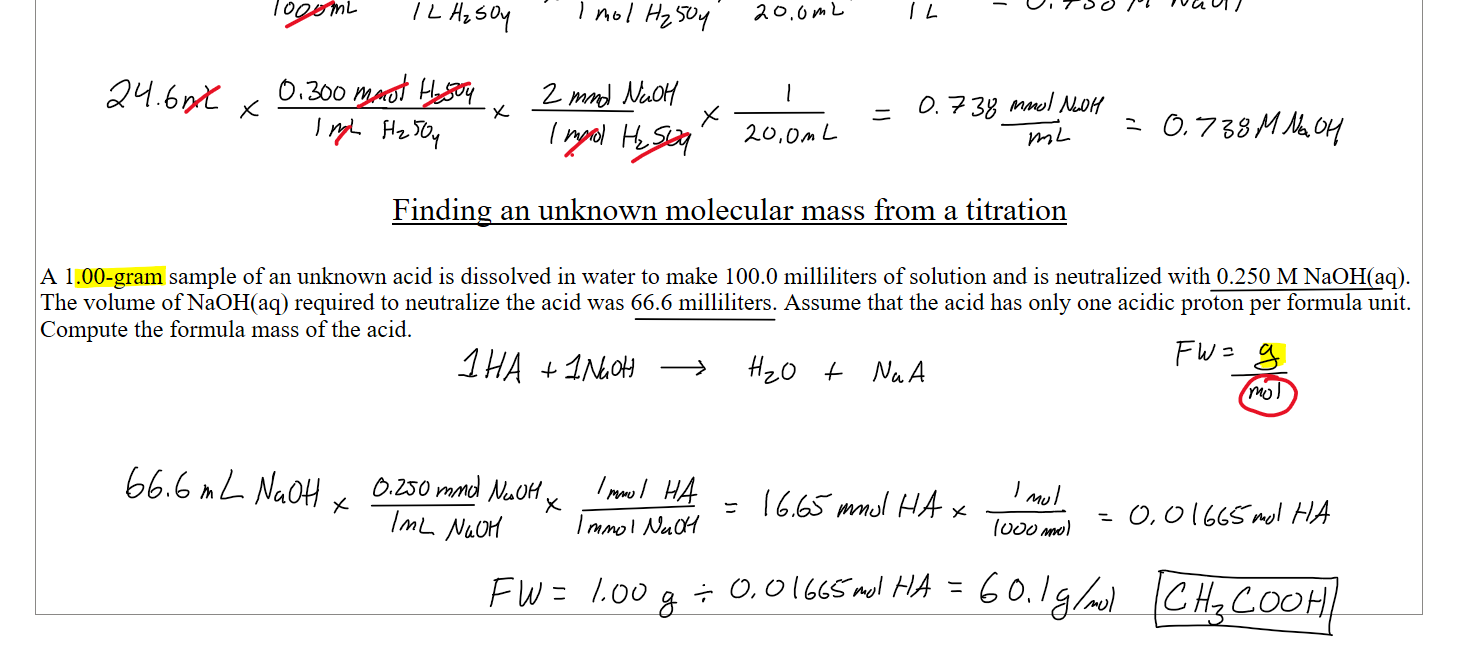 1000mL 1 L H₂SO₄ 1 mol H₂SO₄ 20.0mL 1 L
24.6mL × 0.300 mmol H₂SO₄ / 1 mL H₂SO₄ × 2 mmol NaOH / 1 mmol H₂SO₄ × 1 / 20.0mL = 0.738 mmol NaOH / mL = 0.738M NaOH
Finding an unknown molecular mass from a titration
A 1.00-gram sample of an unknown acid is dissolved in water to make 100.0 milliliters of solution and is neutralized with 0.250 M NaOH(aq).
The volume of NaOH(aq) required to neutralize the acid was 66.6 milliliters. Assume that the acid has only one acidic proton per formula unit.
Compute the formula mass of the acid.
1HA + 1NaOH ⟶ H₂O + NaA
FW = g / mol
66.6 mL NaOH × 0.250 mmol NaOH / 1mL NaOH × 1 mmol HA / 1 mmol NaOH = 16.65 mmol HA × 1 mol / 1000 mmol = 0.01665 mol HA
FW = 1.00 g ÷ 0.01665 mol HA = 60.1g/mol CH₃COOH